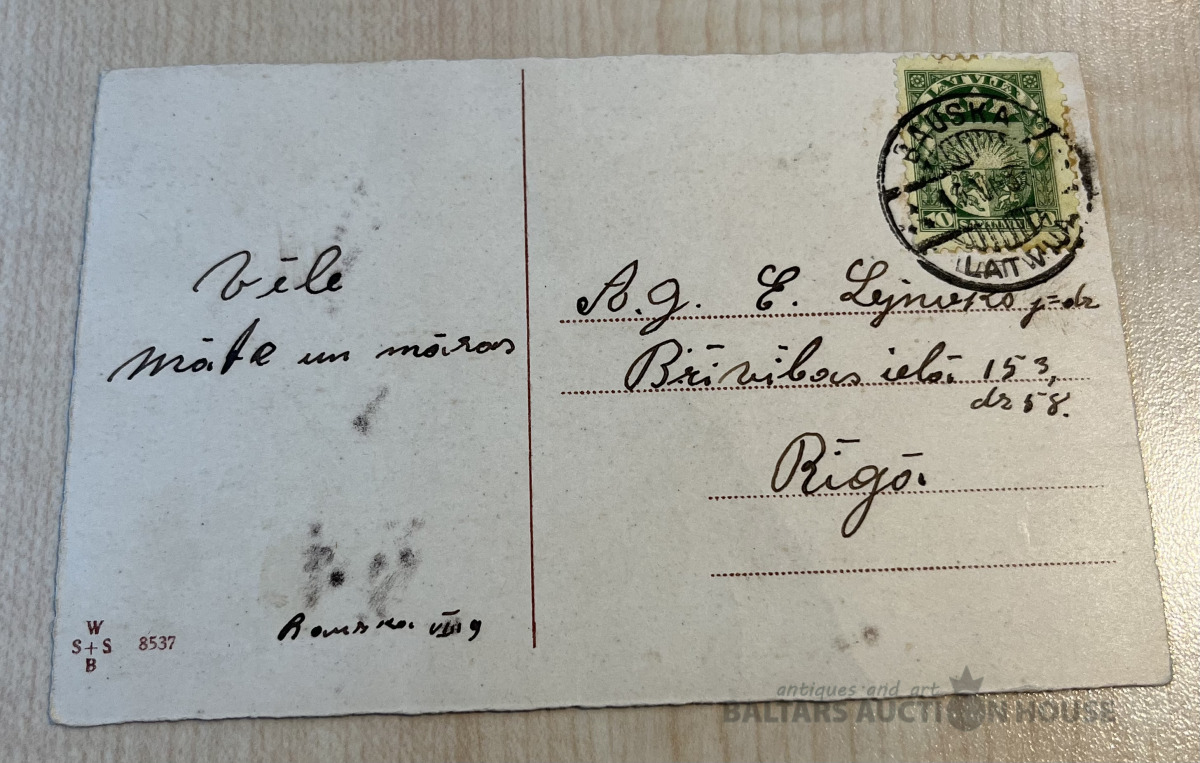 Vēle
māte un māras
Bauska VIII 9
W
S+S 8537
B
LATVIJA
BAUSKA
10
LATWIJA
A.g. E.
Brīvības ielā 153,
dz 58.
Rīgā.
antiques and art
BALTARS AUCTION HOUSE